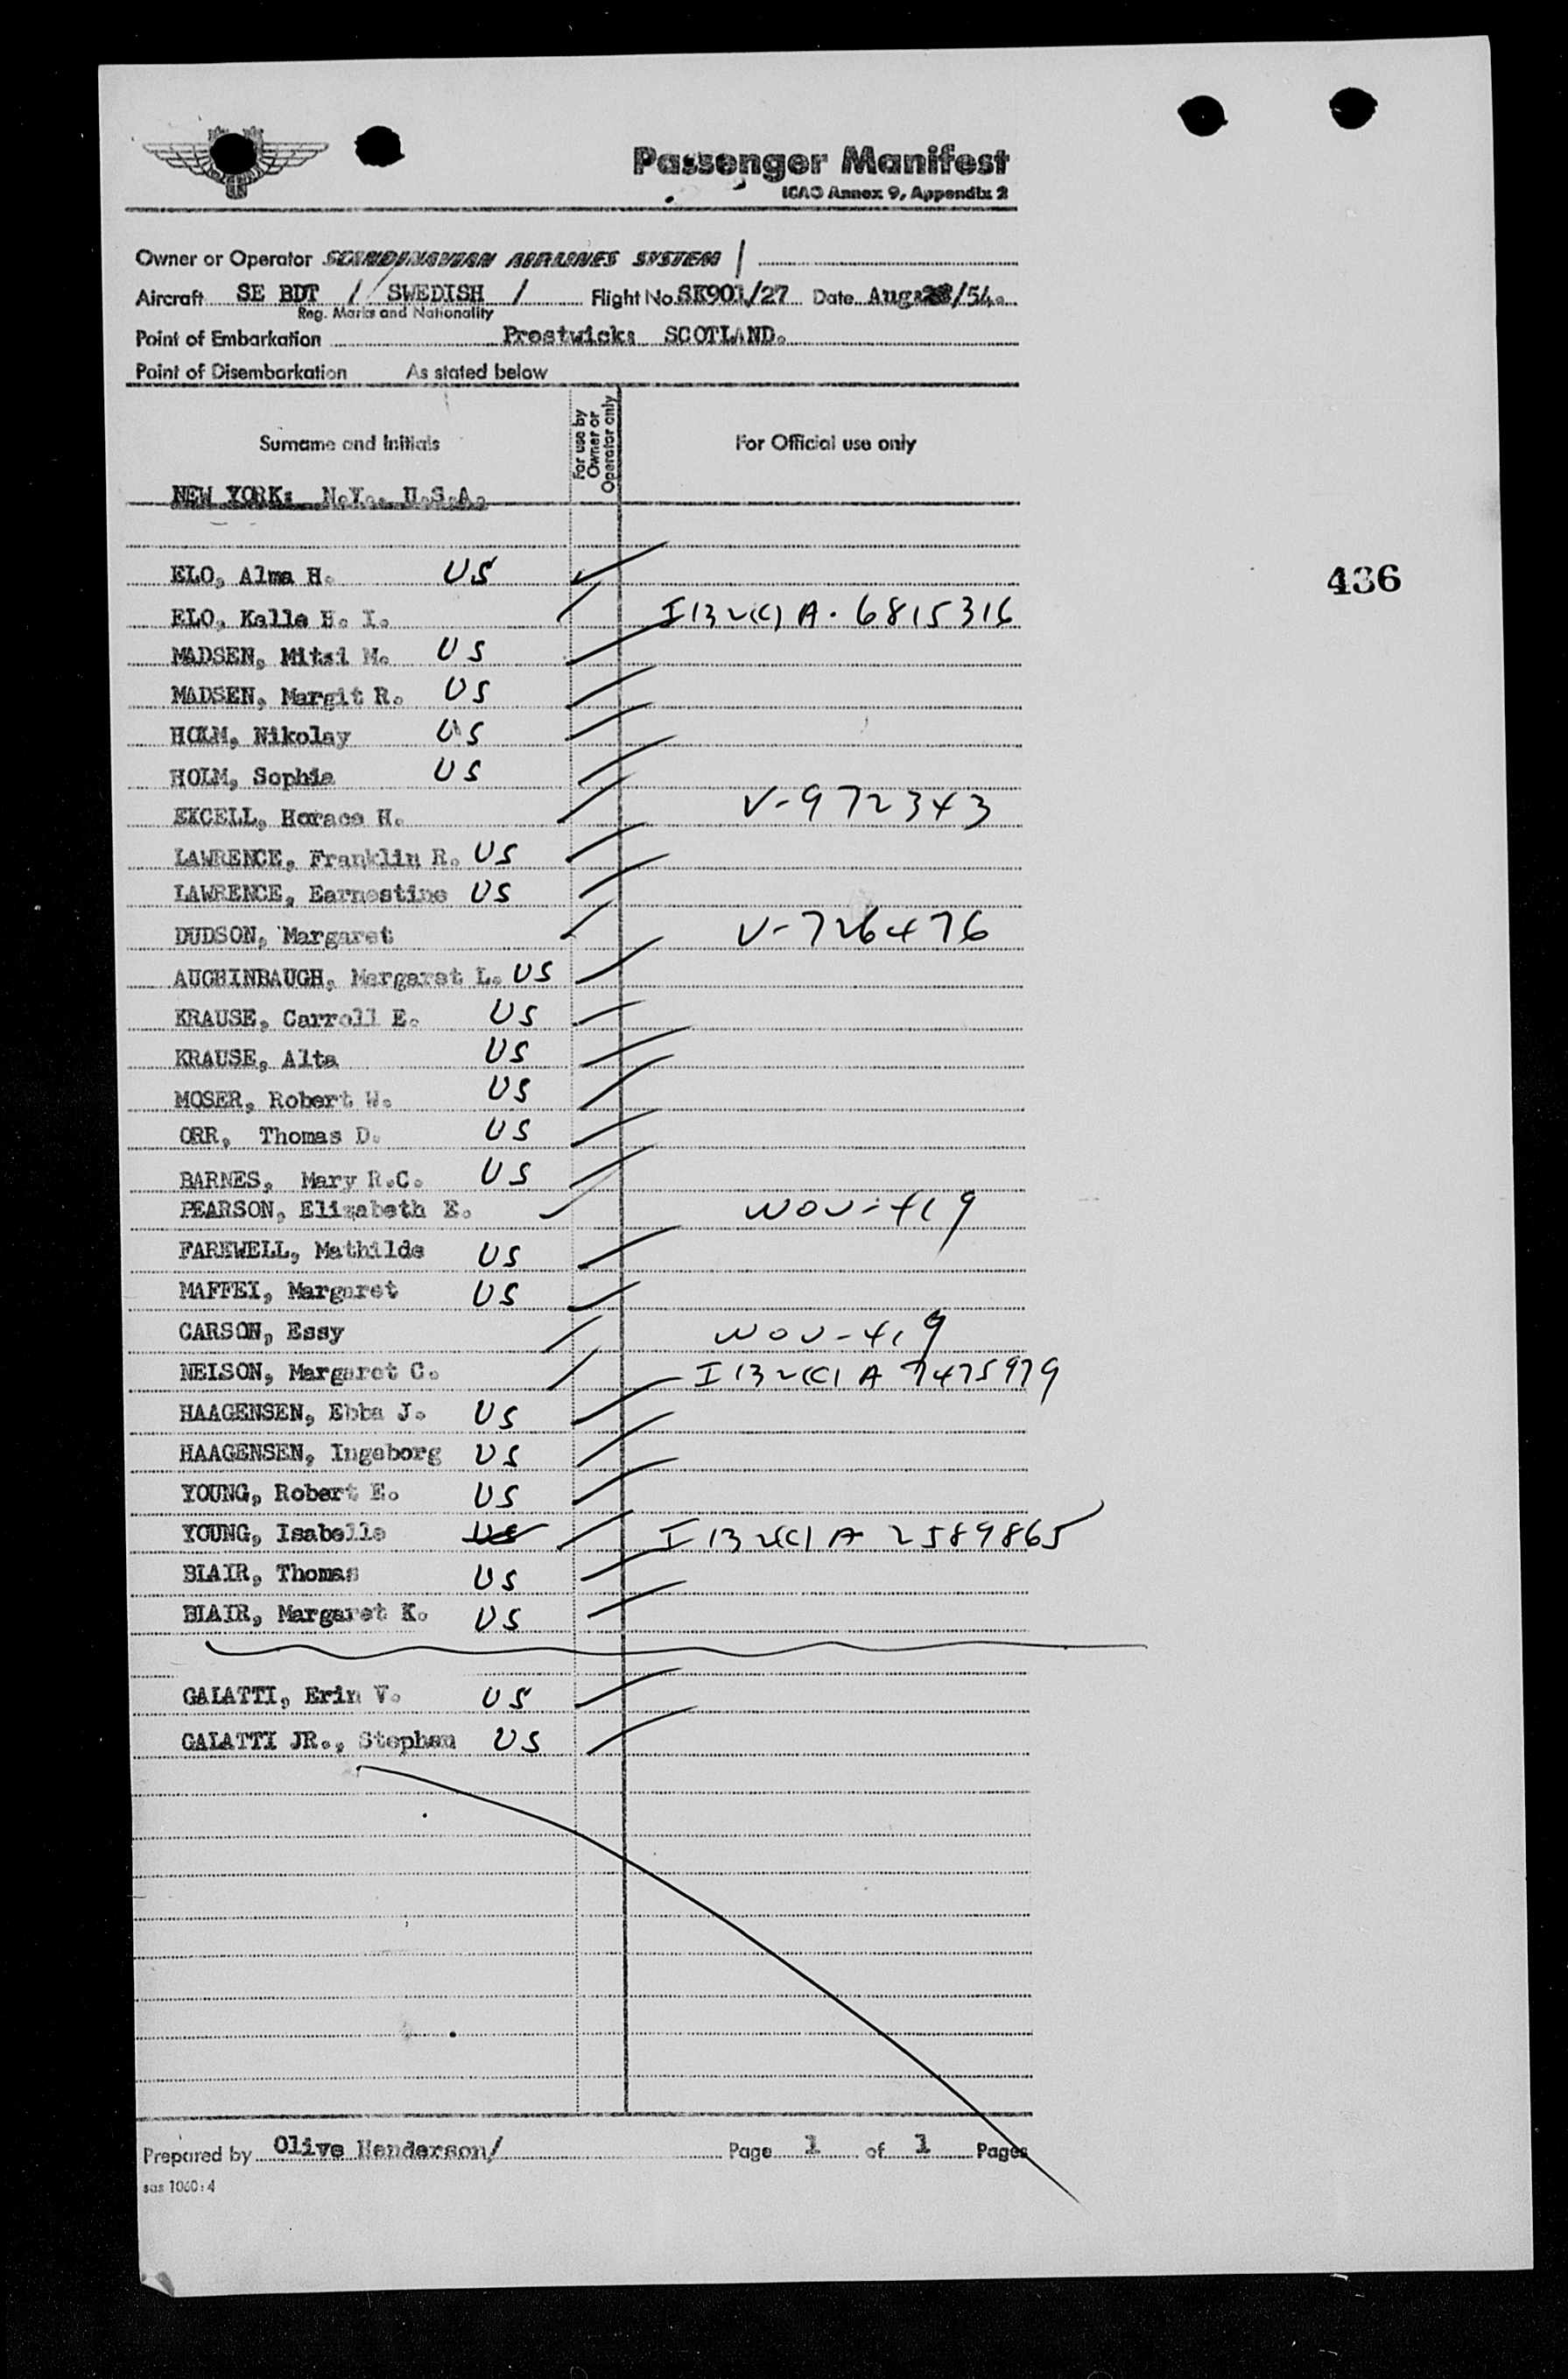 Passenger Manifest
ICAO Annex 9, Appendix 2
Owner or Operator SCANDINAVIAN AIRLINES SYSTEM /
Aircraft SE BDT / SWEDISH / Flight No. SK901/27 Date Aug: /54.
Reg. Marks and Nationality
Point of Embarkation Prestwick: SCOTLAND.
Point of Disembarkation As stated below
Surname and Initials
For use by Owner or Operator only
For Official use only
NEW YORK: N.Y., U.S.A.
ELO, Alma H. US
436
ELO, Kalle H. I. I 132(C) A. 6815316
MADSEN, Mitzi M. US
MADSEN, Margit R. US
HOLM, Nikolay US
HOLM, Sophie US
EXCELL, Horace H. V-972343
LAWRENCE, Franklin R. US
LAWRENCE, Earnestine US
DUDSON, Margaret V-726476
AUCHINBAUGH, Margaret L. US
KRAUSE, Carroll E. US
KRAUSE, Alta US
MOSER, Robert W. US
ORR, Thomas D. US
BARNES, Mary R.C. US
PEARSON, Elizabeth E. WOV-419
FAREWELL, Mathilde US
MAFFEI, Margaret US
CARSON, Essy WOV-419
NEISON, Margaret C. I 132(C) A 7475979
HAAGENSEN, Ebba J. US
HAAGENSEN, Ingeborg US
YOUNG, Robert E. US
YOUNG, Isabelle US I 132(C) A 2589865
BLAIR, Thomas US
BLAIR, Margaret K. US
GALATTI, Erin V. US
GALATTI JR., Stephen US
Prepared by Olive Henderson/ Page 1 of 1 Pages
sas 1060:4